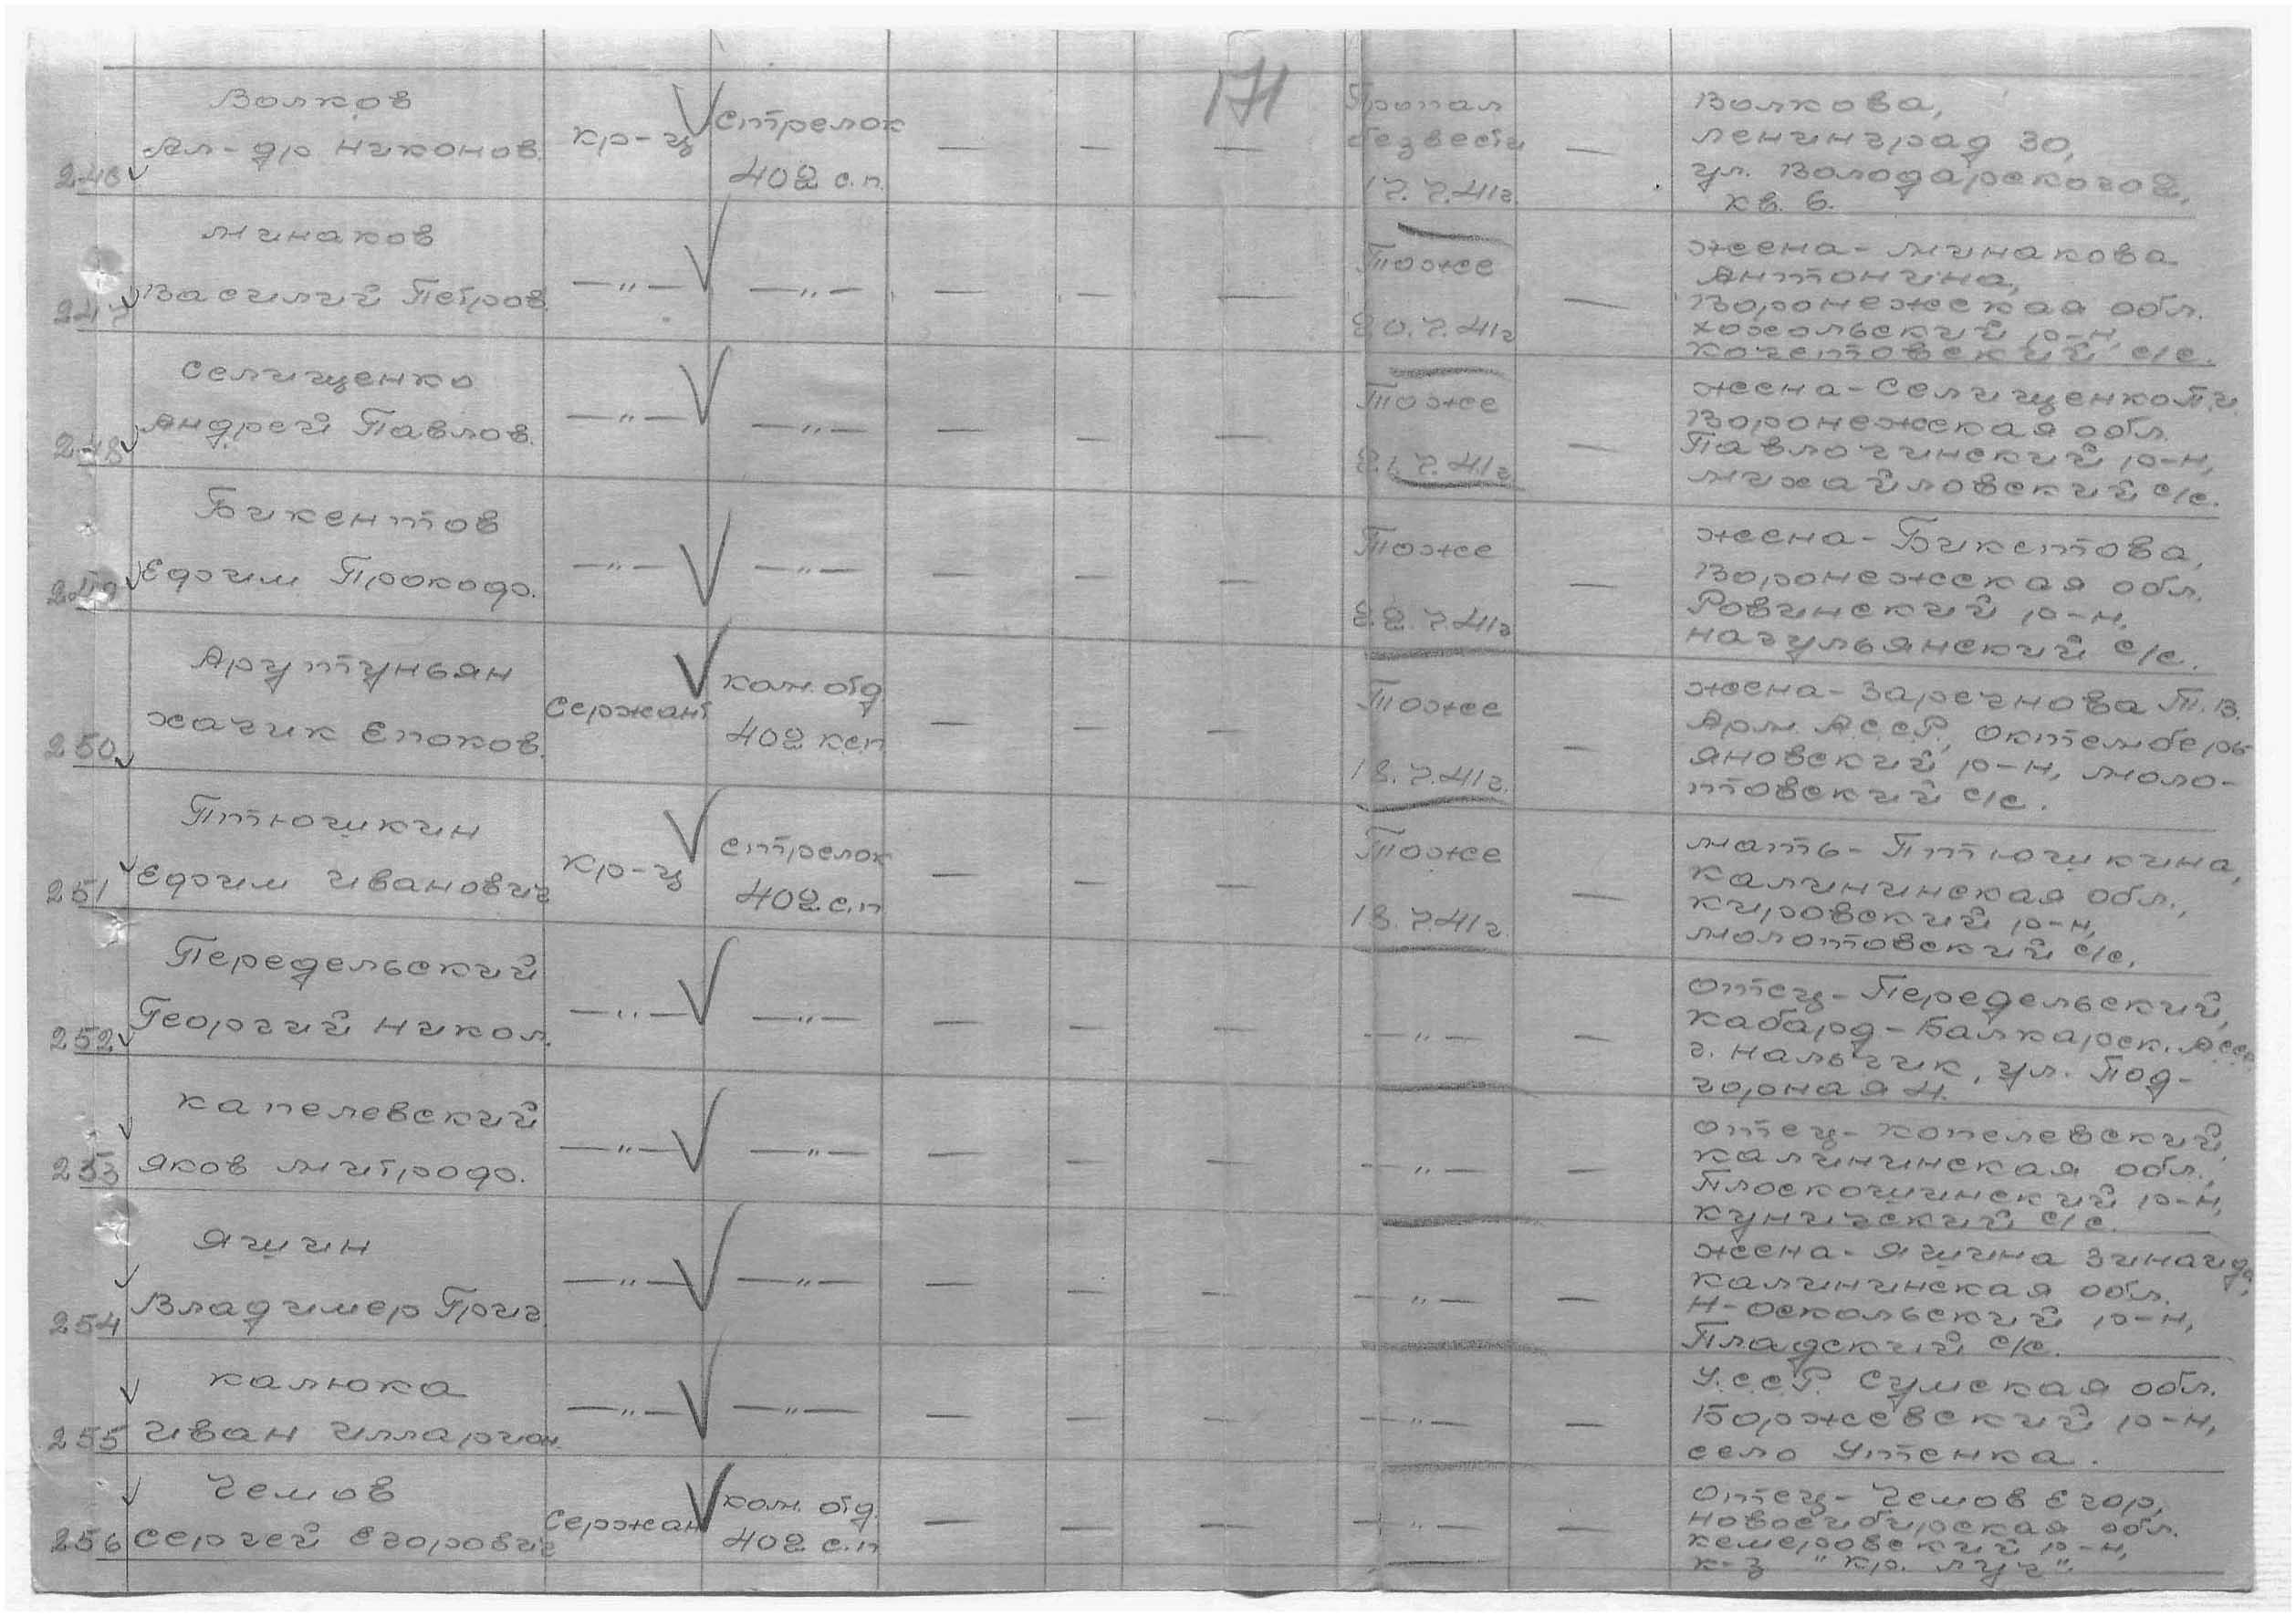 171
Волков
Ал-др Никонов.
246
кр-ц
Стрелок
402 с.п.
— — —
Пропал
безвести
17.7.41г.
—
Волкова,
Ленинград 30,
ул. Володарского 2,
кв. 6.
Минаков
Василий Петров.
247
—"—
—"—
— — —
Тоже
20.7.41г
—
жена - Минакова
Антонина,
Воронежская обл.
Хохольский р-н,
Кочетовский с/с.
Селищенко
Андрей Павлов.
248
—"—
—"—
— — —
Тоже
21.7.41г
—
жена - Селищенко П.И.
Воронежская обл.
Павлочинский р-н,
Михайловский с/с.
Бикентов
Ефим Прокоф.
249
—"—
—"—
— — —
Тоже
22.7.41г
—
жена - Бикетова,
Воронежская обл.
Ровинский р-н,
Нагульянский с/с.
Арутуньян
Хачик Епоков.
250
Сержант
ком. отд
402 к.с.п
— — —
Тоже
18.7.41г.
—
жена - Заречнова Т.В.
Арм. А.С.С.Р., Октембе рь
яновский р-н, Моло-
товский с/с.
Птюшкин
Ефим Иванович
251
кр-ц
Стрелок
402 с.п
— — —
Тоже
18.7.41г.
—
мать - Птюшкина,
Калининская обл.,
Кировский р-н,
Молотовский с/с.
Передельский
Георгий Никол.
252
—"—
—"—
— — —
—"—
—
отец - Передельский,
Кабард-Балкарск. АССР
г. Нальчик, ул. Под-
горная 4.
Капелевский
Яков Митроф.
253
—"—
—"—
— — —
—"—
—
отец - Копелевский,
Калининская обл.,
Плоскошинский р-н,
Куничский с/с.
Яшин
Владимер Григ.
254
—"—
—"—
— — —
—"—
—
жена - Яшина Зинаида,
Калининская обл.
Н-Оскольский р-н,
Пладский с/с.
Калюка
Иван Илларион.
255
—"—
—"—
— — —
—"—
—
У.С.С.Р. Сумская обл.
Боржевский р-н,
село Утенка.
Чемов
Сергей Егорович
256
Сержан
ком. отд.
402 с.п
— — —
—"—
—
отец - Чемов Егор,
Новосибирская обл.
Кемеровский р-н,
к-з "Кр. Луч".